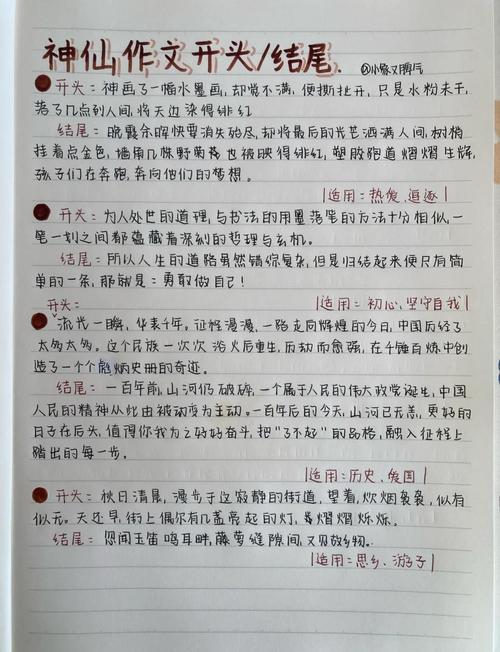 神仙作文开头/结尾.
@小象又脾气
开头：神画了一幅水墨画，却觉不满，便撕扯开，只是水粉未干，
落了几点到人间，将天边染得绯红
结尾：晚霞余晖快要消失殆尽，却将最后的光芒洒满人间，树梢
挂着点金色，墙角几株野菊花也被映得绯红，塑胶跑道熠熠生辉，
孩子们在奔跑，奔向他们的梦想。
|适用：热爱、追逐|
开头：为人处世的道理，与书法的用墨落笔的方法十分相似，一
笔一划之间都蕴藏着深刻的哲理与玄机。
结尾：所以人生的道路虽然错综复杂，但是归结起来便只有简
单的一条，那就是：勇敢做自己！
|适用：初心、坚守自我|
开头：
流光一瞬，华表千年。征程漫漫，一路走向辉煌的今日，中国历经了
太多太多。这个民族一次次浴火后重生，历劫而愈强，在千锤百炼中创
造了一个个彪炳史册的奇迹。
结尾：一百年前，山河仍破碎，一个属于人民的伟大政党诞生，中国
人民的精神从此由被动变为主动。一百年后的今天，山河已无恙，更好的
日子在后头，值得你我为之好好奋斗，把"了不起"的品格，融入征程上
踏出的每一步。
|适用：历史、爱国|
开头：秋日清晨，漫步于这寂静的街道，望着，炊烟袅袅，似有
似无。天还早，街上偶尔有几盏亮起的灯，熠熠烁烁。
结尾：忽闻玉笛鸣耳畔，藤萝缝隙间，又见故乡物。
|适用：思乡、游子|